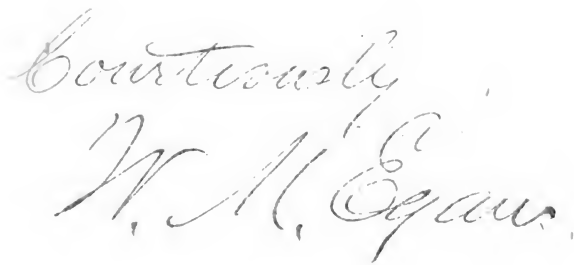 Courtiously
W. M. Egan.